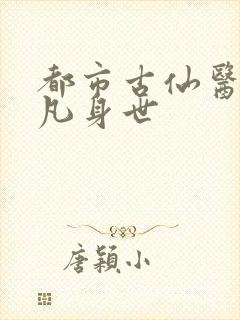 都市古仙醫
凡身世
唐穎小